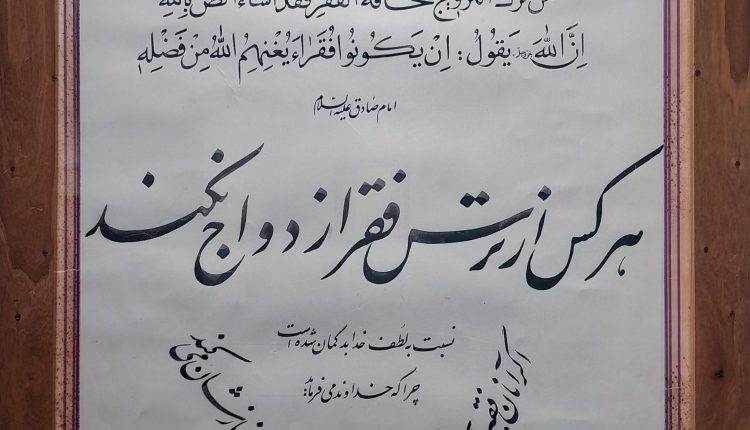 من ترک التزویج مخافة الفقر فقد اساء الظن بالله
اِنَّ اللهَ عزوجل یَقُولُ: اِنْ یَکُونُوا فُقَرٰاءَ یُغْنِهِمُ اللهُ مِنْ فَضْلِهِ
امام صادق علیه السلام
هر کس از ترس فقر ازدواج نکند
نسبت به لطف خدا بدگمان شده است
چرا که خداوند می فرماید:
اگر آنان